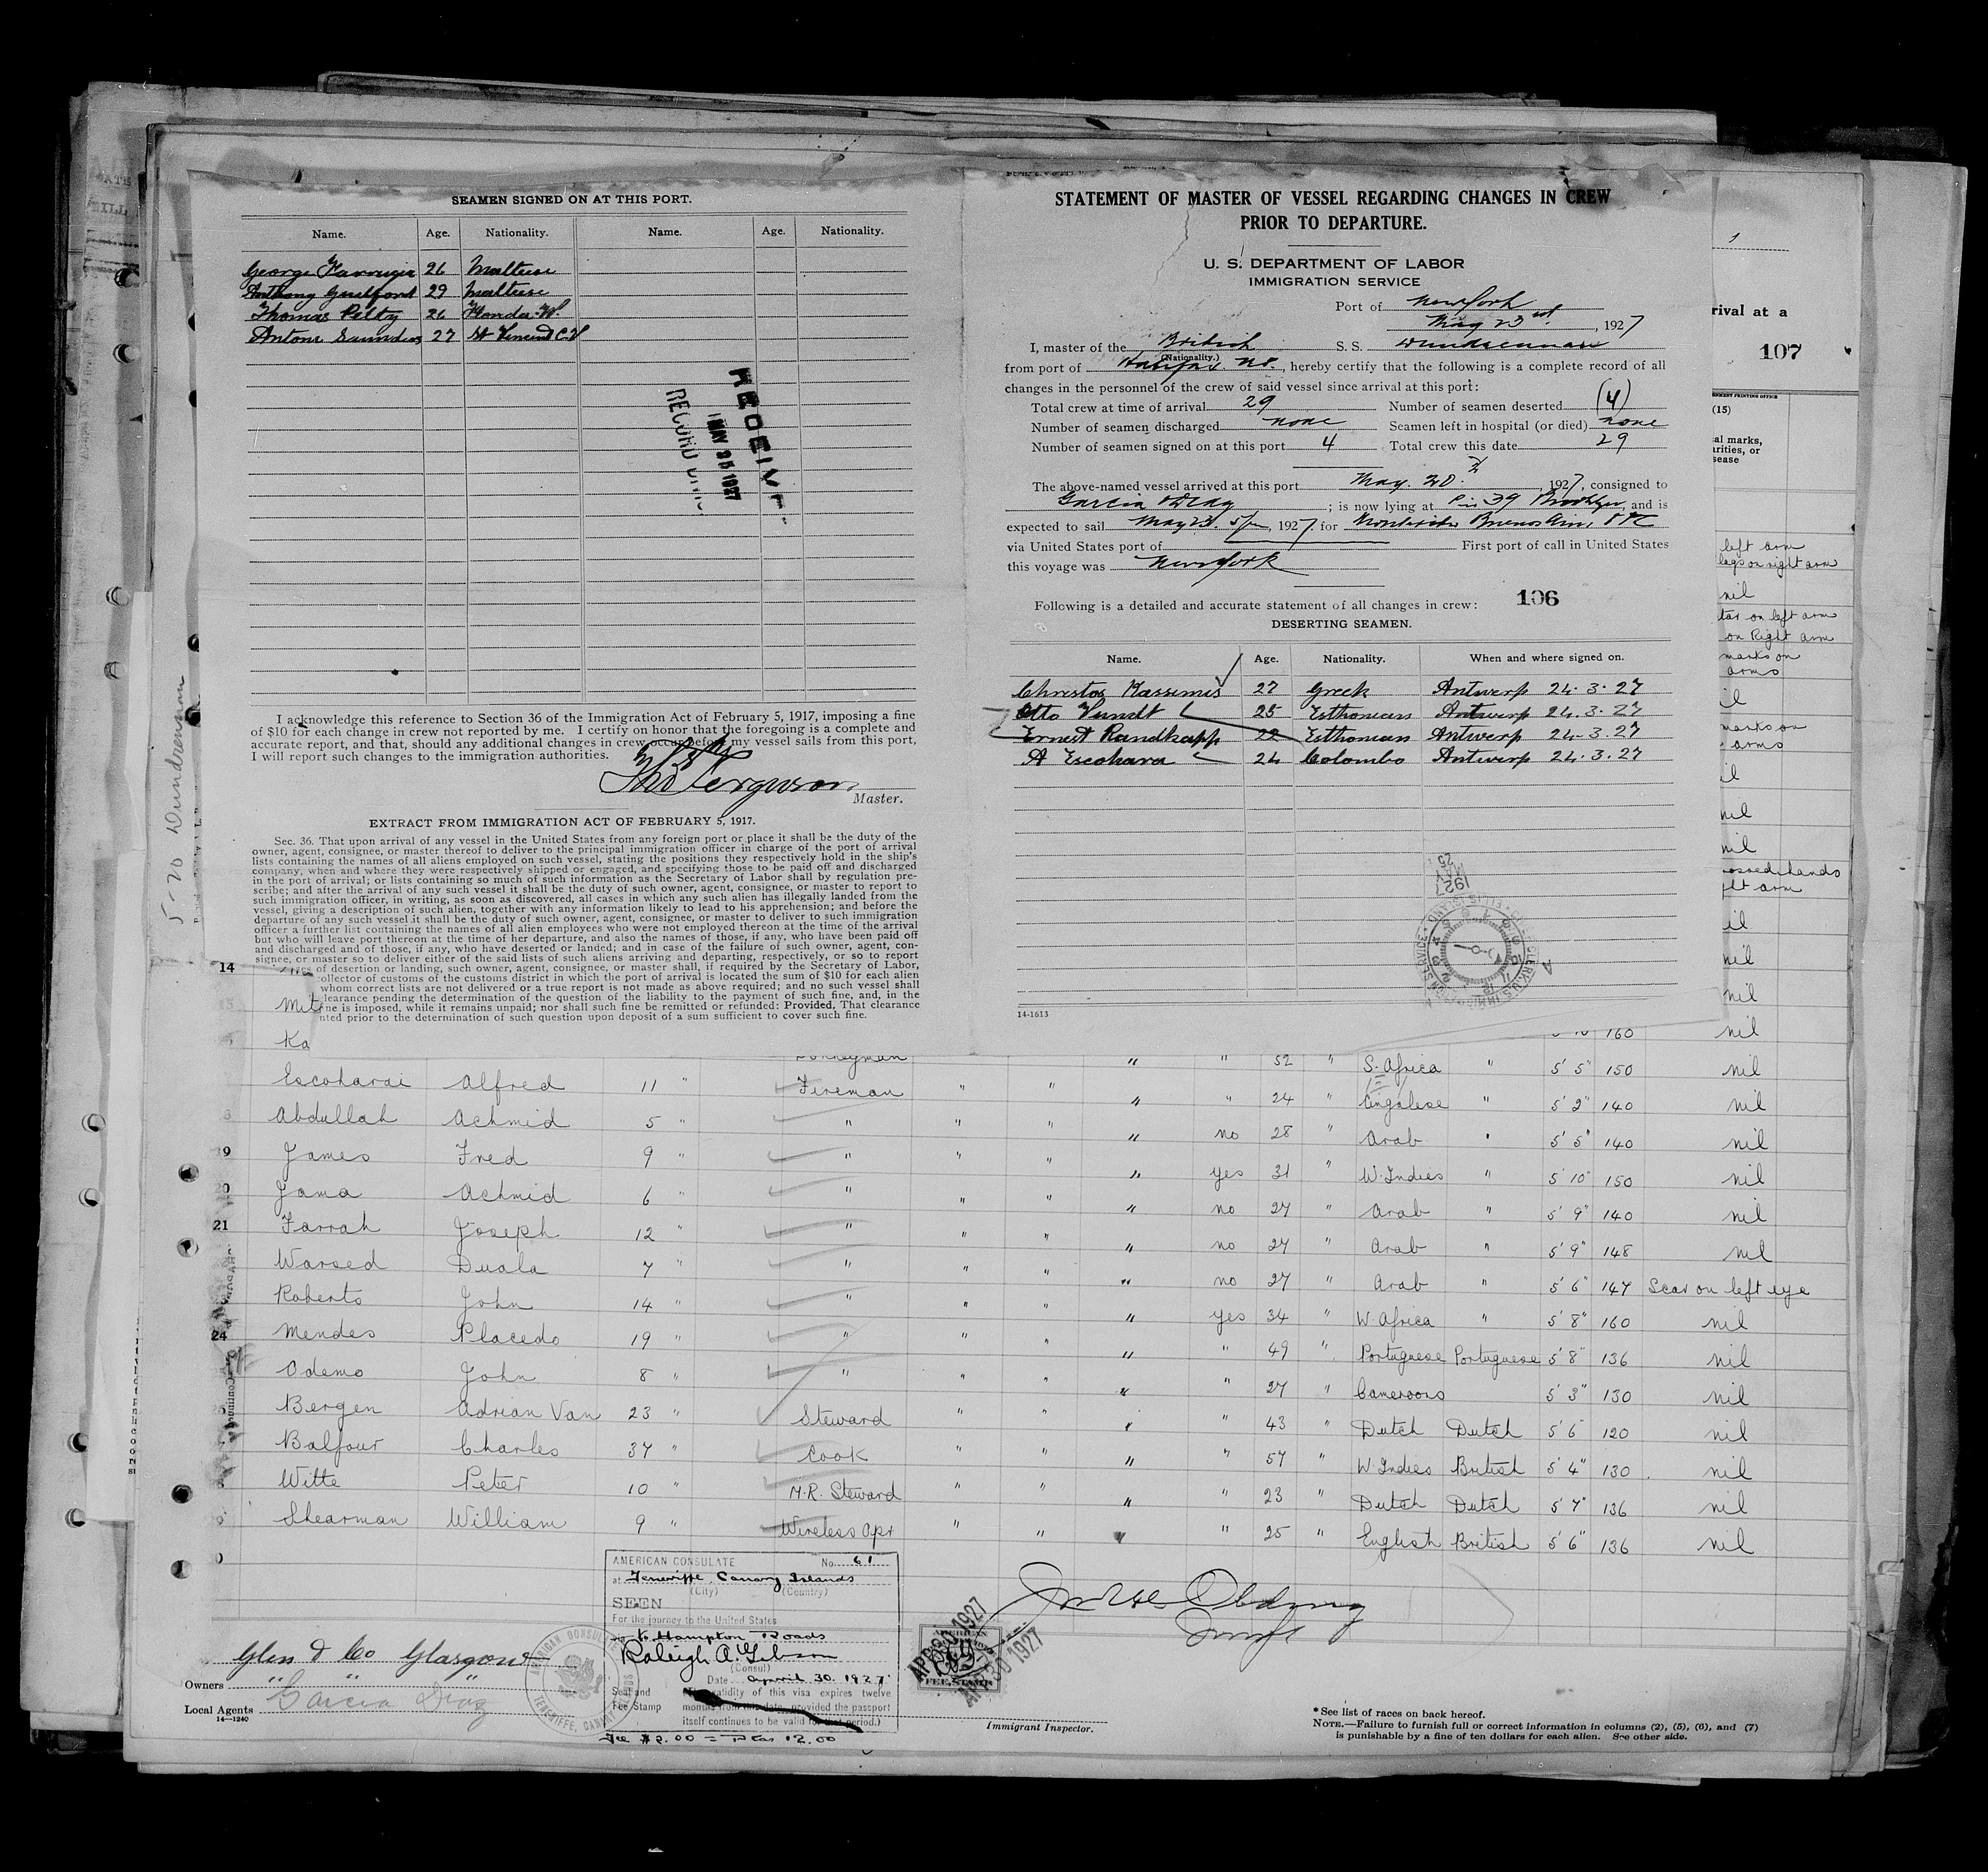 SEAMEN SIGNED ON AT THIS PORT.
Name. Age. Nationality. Name. Age. Nationality.
George 26 Maltese
Anthony Guilford 29 Maltese
Thomas 26
Antoni Saunders 27 St Vincent C.V
RECEIVED
MAY 25 1927
RECORD
I acknowledge this reference to Section 36 of the Immigration Act of February 5, 1917, imposing a fine
of $10 for each change in crew not reported by me. I certify on honor that the foregoing is a complete and
accurate report, and that, should any additional changes in crew occur before my vessel sails from this port,
I will report such changes to the immigration authorities.
Ferguson
Master.
EXTRACT FROM IMMIGRATION ACT OF FEBRUARY 5, 1917.
Sec. 36. That upon arrival of any vessel in the United States from any foreign port or place it shall be the duty of the
owner, agent, consignee, or master thereof to deliver to the principal immigration officer in charge of the port of arrival
lists containing the names of all aliens employed on such vessel, stating the positions they respectively hold in the ship's
company, when and where they were respectively shipped or engaged, and specifying those to be paid off and discharged
in the port of arrival; or lists containing so much of such information as the Secretary of Labor shall by regulation pre-
scribe; and after the arrival of any such vessel it shall be the duty of such owner, agent, consignee, or master to report to
such immigration officer, in writing, as soon as discovered, all cases in which any such alien has illegally landed from the
vessel, giving a description of such alien, together with any information likely to lead to his apprehension; and before the
departure of any such vessel it shall be the duty of such owner, agent, consignee, or master to deliver to such immigration
officer a further list containing the names of all alien employees who were not employed thereon at the time of the arrival
but who will leave port thereon at the time of her departure, and also the names of those, if any, who have been paid off
and discharged and of those, if any, who have deserted or landed; and in case of the failure of such owner, agent, con-
signee, or master so to deliver either of the said lists of such aliens arriving and departing, respectively, or so to report
of desertion or landing, such owner, agent, consignee, or master shall, if required by the Secretary of Labor,
collector of customs of the customs district in which the port of arrival is located the sum of $10 for each alien
whom correct lists are not delivered or a true report is not made as above required; and no such vessel shall
learance pending the determination of the question of the liability to the payment of such fine, and, in the
ne is imposed, while it remains unpaid; nor shall such fine be remitted or refunded: Provided, That clearance
nted prior to the determination of such question upon deposit of a sum sufficient to cover such fine.
STATEMENT OF MASTER OF VESSEL REGARDING CHANGES IN CREW
PRIOR TO DEPARTURE.
U. S. DEPARTMENT OF LABOR
IMMIGRATION SERVICE
Port of New York
May 23rd, 1927
I, master of the British S. S. Dundrennan
(Nationality.)
from port of Halifax N.S., hereby certify that the following is a complete record of all
changes in the personnel of the crew of said vessel since arrival at this port:
Total crew at time of arrival 29 Number of seamen deserted (4)
Number of seamen discharged none Seamen left in hospital (or died) none
Number of seamen signed on at this port 4 Total crew this date 29
The above-named vessel arrived at this port May. 20, 1927, consigned to
Garcia & Diaz; is now lying at Pier 39 Brooklyn, and is
expected to sail May 23. 5 pm, 1927 for Montevideo Buenos Aires, etc
via United States port of First port of call in United States
this voyage was New York
Following is a detailed and accurate statement of all changes in crew: 106
DESERTING SEAMEN.
Name. Age. Nationality. When and where signed on.
Christos Kassimis 27 Greek Antwerp 24.3.27
Otto Vundt 25 Esthonian Antwerp 24.3.27
Ernest Randkapp 22 Esthonian Antwerp 24.3.27
A Escohara 24 Colombo Antwerp 24.3.27
MAY 25
1927
14-1613
1
rival at a
107
(15)
al marks,
arities, or
sease
left arm
legs on right arm
nil
tar on left arm
on Right arm
marks on
arms
il
marks on
arms
il
nil
nil
rossed hands
ght arm
il
nil
nil
5-20 Dundrennan
14
Mit
Ka 160 nil
Donkeyman " " 52 " S. Africa " 5' 5" 150 nil
Escoharai Alfred 11 " Fireman " " " " 24 " Cingalese " 5' 2" 140 nil
Abdullah Achmid 5 " " " " " no 28 " Arab " 5' 5" 140 nil
19 James Fred 9 " " " " " yes 31 " W. Indies " 5' 10" 150 nil
20 Jama Achmid 6 " " " " " no 27 " Arab " 5' 9" 140 nil
21 Farrah Joseph 12 " " " " " no 27 " Arab " 5' 9" 148 nil
Warsed Duala 7 " " " " " no 27 " Arab " 5' 6" 147 Scar on left eye
Roberts John 14 " " " " " yes 34 " W. Africa " 5' 8" 160 nil
24 Mendes Placedo 19 " " " " " " 49 " Portuguese Portuguese 5' 8" 136 nil
Odemo John 8 " " " " " " 27 " Cameroons 5' 3" 130 nil
Bergen Adrian Van 23 " Steward " " " " 43 " Dutch Dutch 5' 6 120 nil
Balfour Charles 37 " Cook " " " " 57 " W. Indies British 5' 4" 130 nil
Witte Peter 10 " M.R. Steward " " " " 23 " Dutch Dutch 5' 7" 136 nil
Shearman William 9 " Wireless Opr " " " " 25 " English British 5' 6" 136 nil
AMERICAN CONSULATE No. 61
at Teneriffe, Canary Islands
(City) (Country)
SEEN
For the journey to the United States
to Hampton Roads
Raleigh A. Gibson
(Consul)
Date April 30. 1927
Seal and validity of this visa expires twelve
Fee Stamp months from this date, provided the passport
itself continues to be valid for that period.)
Fee $2.00 = Ptas 12.00
AMERICAN CONSULATE
TENERIFFE, CANARY ISLANDS
APR 30 1927
APR 30 1927
AMERICAN
FEE STAMP
Glen & Co Glasgow
Owners " " "
Local Agents Garcia Diaz
14—1240
Immigrant Inspector.
* See list of races on back hereof.
NOTE.—Failure to furnish full or correct information in columns (2), (5), (6), and (7)
is punishable by a fine of ten dollars for each alien. See other side.